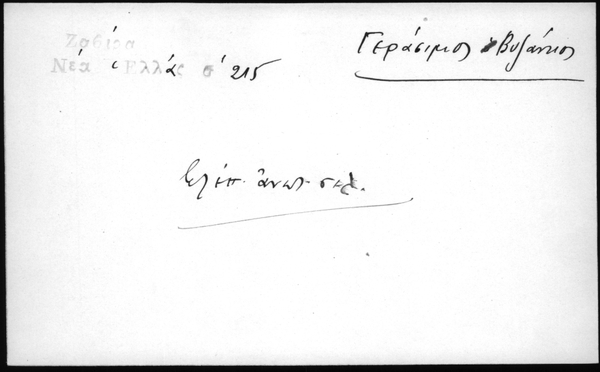 Ζαβίρα
Νέα Ἑλλάς σ 215
Γεράσιμος Βυζάντιος
βλέπ. ἄνωτ. σελ.